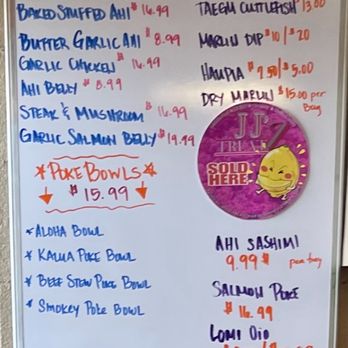 BAKED STUFFED AHI $16.99
BUTTER GARLIC AHI $8.99
GARLIC CHICKEN $16.99
AHI BELLY $8.99
STEAK & MUSHROOM $16.99
GARLIC SALMON BELLY $19.99
*POKE BOWLS*
$15.99
* ALOHA BOWL
* KALUA POKE BOWL
* BEEF STEW POKE BOWL
* SMOKEY POKE BOWL
TAEGU CUTTLEFISH $13.00
MARLIN DIP $10/$20
HAUPIA $2.50/$5.00
DRY $15.00 per
Bag
JJ'Z
TREATZ
SOLD
HERE
AHI SASHIMI
9.99
SALMON POKE
$16.99
LOMI OIO